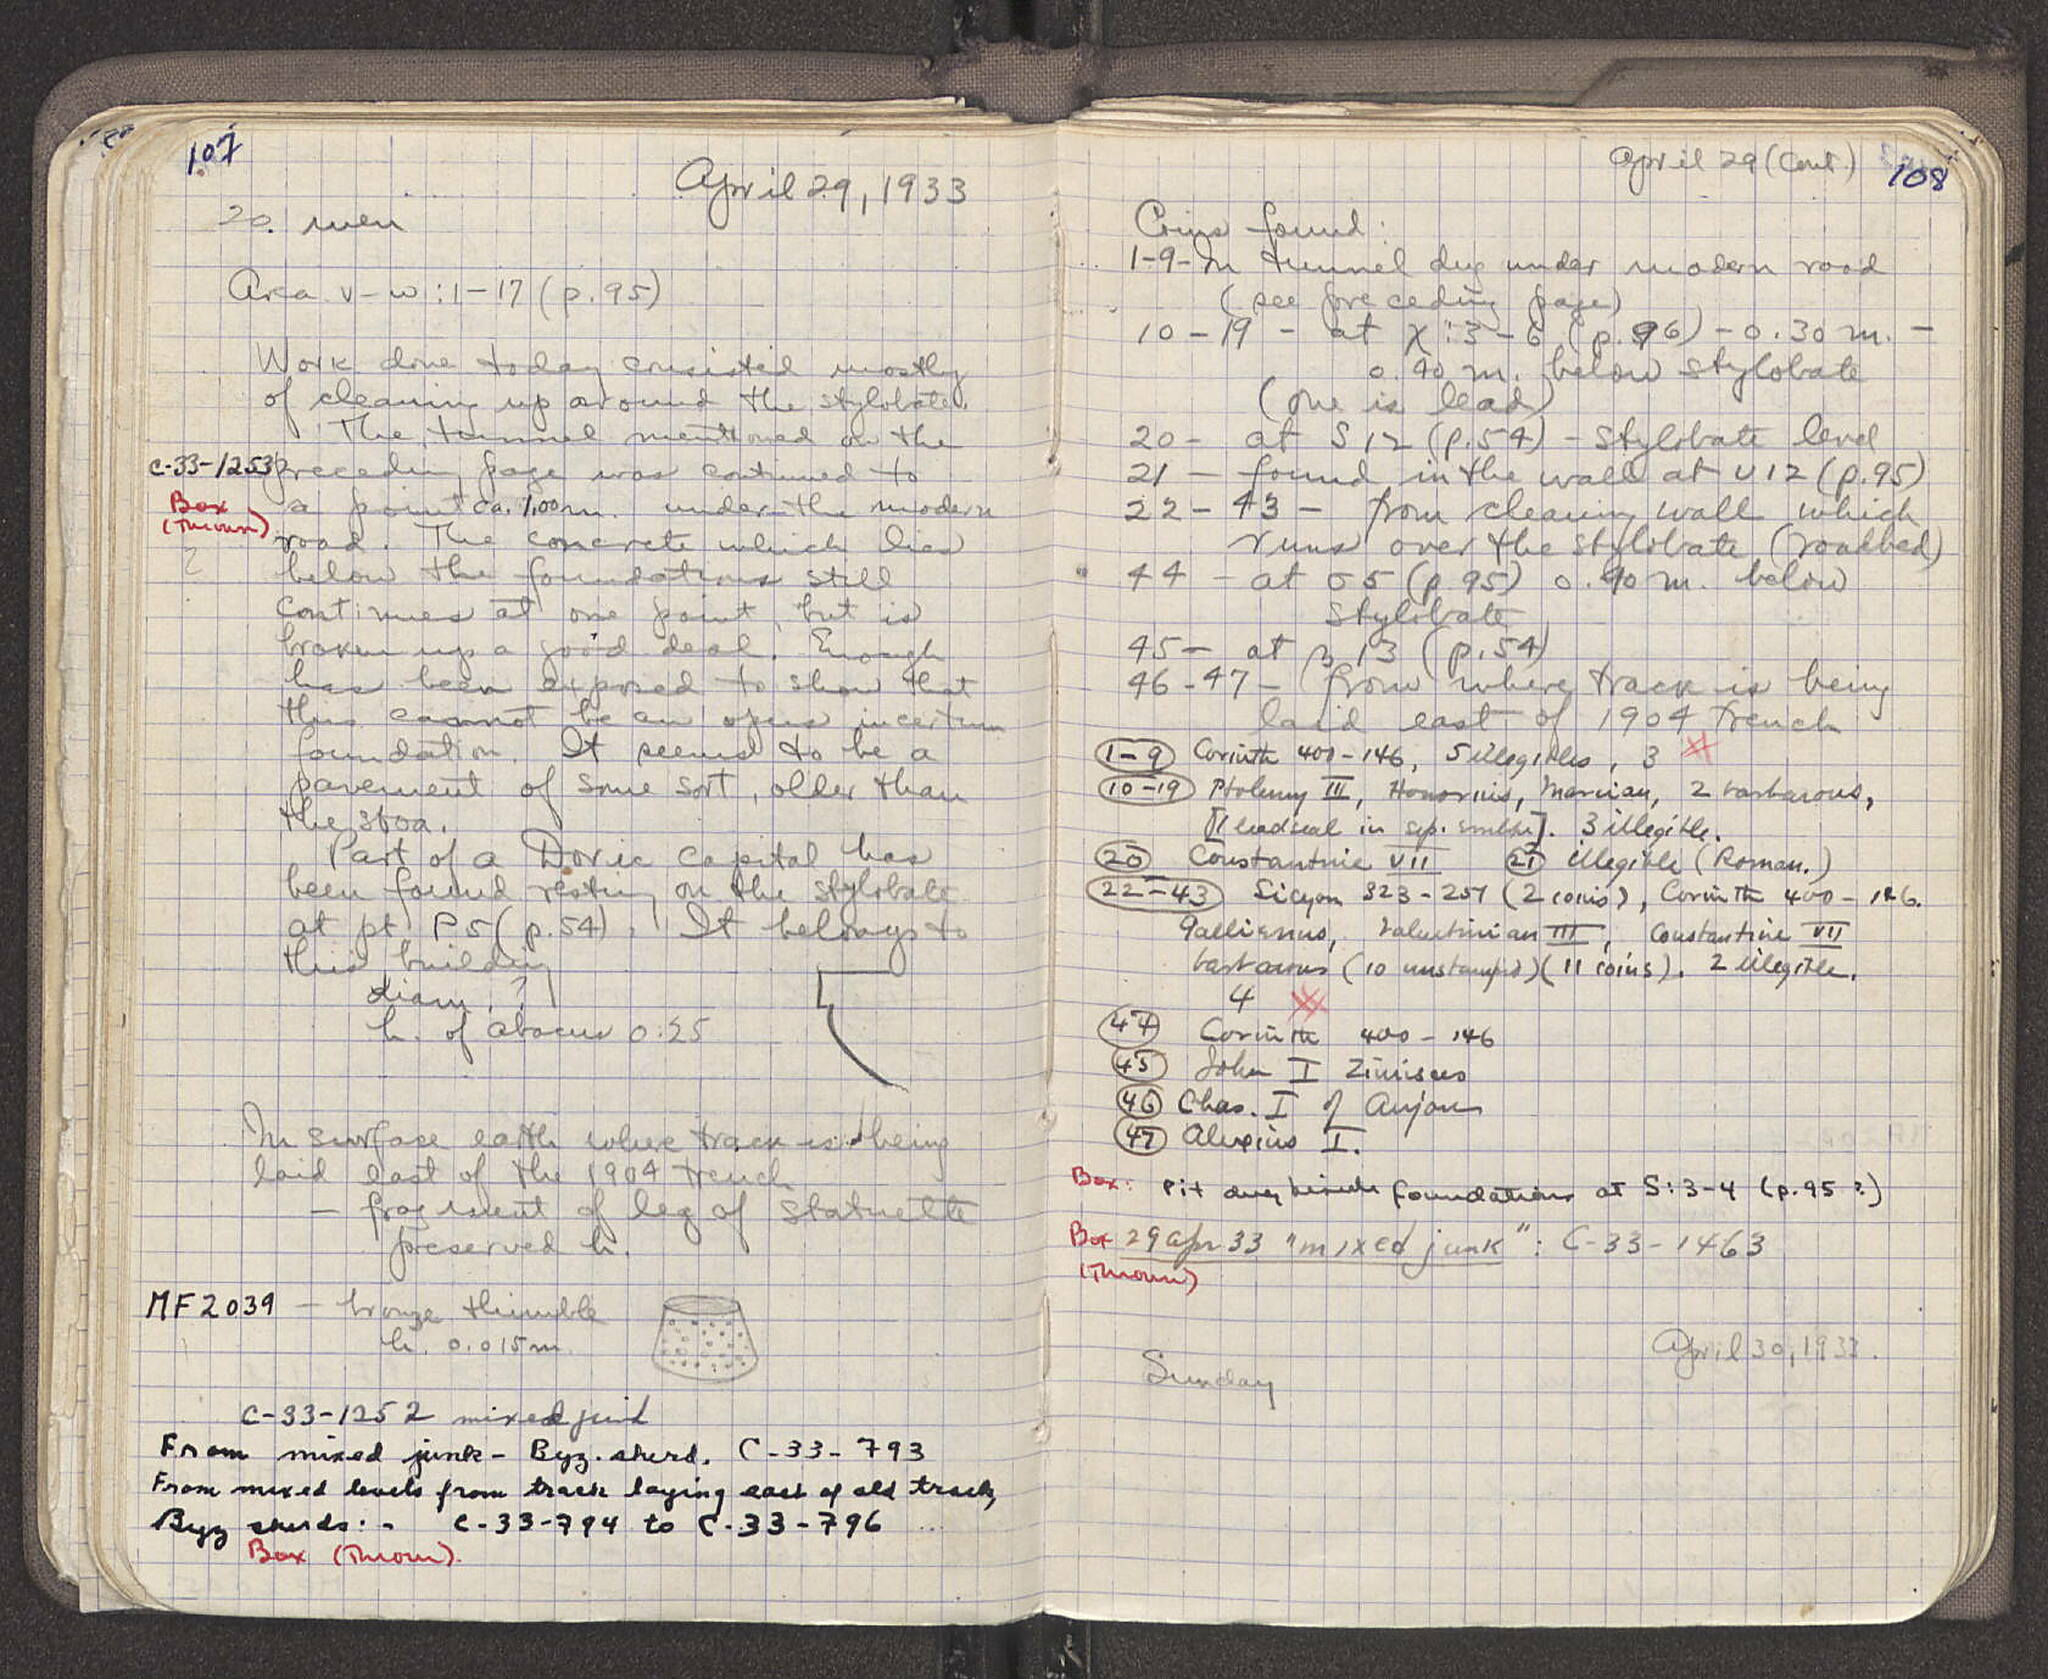 107
April 29, 1933
20. men
Area v-w:1-17 (p.95)
Work done today consisted mostly
of cleaning up around the stylobate.
The tunnel mentioned on the
C-33-1253 preceding page was continued to
Box a point ca. 1.00 m. under the modern
(Thrown) road. The concrete which lies
below the foundations still
continues at one point, but is
broken up a good deal. Enough
has been exposed to show that
this cannot be an opus incertum
foundation. It seems to be a
pavement of some sort, older than
the stoa.
Part of a Doric capital has
been found resting on the stylobate
at pt. P5 (p.54). It belongs to
this building
diam. ?
h. of abacus 0.25
In surface earth where track is being
laid east of the 1904 trench
— fragment of leg of statuette
preserved h.
MF2039 — bronze thimble
h. 0.015m
C-33-1252 mixed junk
From mixed junk - Byz. sherd. C-33-793
From mixed levels from track laying east of old track,
Byz sherds:- C-33-794 to C-33-796
Box (Thrown).
April 29 (Cont.) 108
Coins found:
1-9 - In tunnel dug under modern road
(see preceding page)
10-19 - at χ:3-6 (p.96) - 0.30 m. -
0.40 m. below stylobate
(one is lead)
20 - at S12 (p.54) - stylobate level
21 - found in the wall at υ12 (p.95)
22-43 - from cleaning wall which
runs over the stylobate (roadbed)
44 - at σ5 (p.95) 0.40 m. below
stylobate
45 - at 13 (p.54)
46-47 - from where track is being
laid east of 1904 trench
1-9 Corinth 400-146, 5 illegibles, 3
10-19 Ptolemy III, Honorius, Marcian, 2 barbarous,
[1 leadseal in sep. ]. 3 illegible.
20 Constantine VII 21 illegible (Roman.)
22-43 Sicyon 323-251 (2 coins), Corinth 400-146.
Gallienus, Valentinian III, Constantine VII
barbarous (10 unstamped) (11 coins). 2 illegible.
4
44 Corinth 400-146
45 John I Zimisces
46 Chas. I of Anjou
47 Alexius I.
Box: Pit dug beside foundations at S:3-4 (p.95?)
Box 29 Apr 33 "mixed junk": C-33-1463
(Thrown)
April 30, 1933.
Sunday